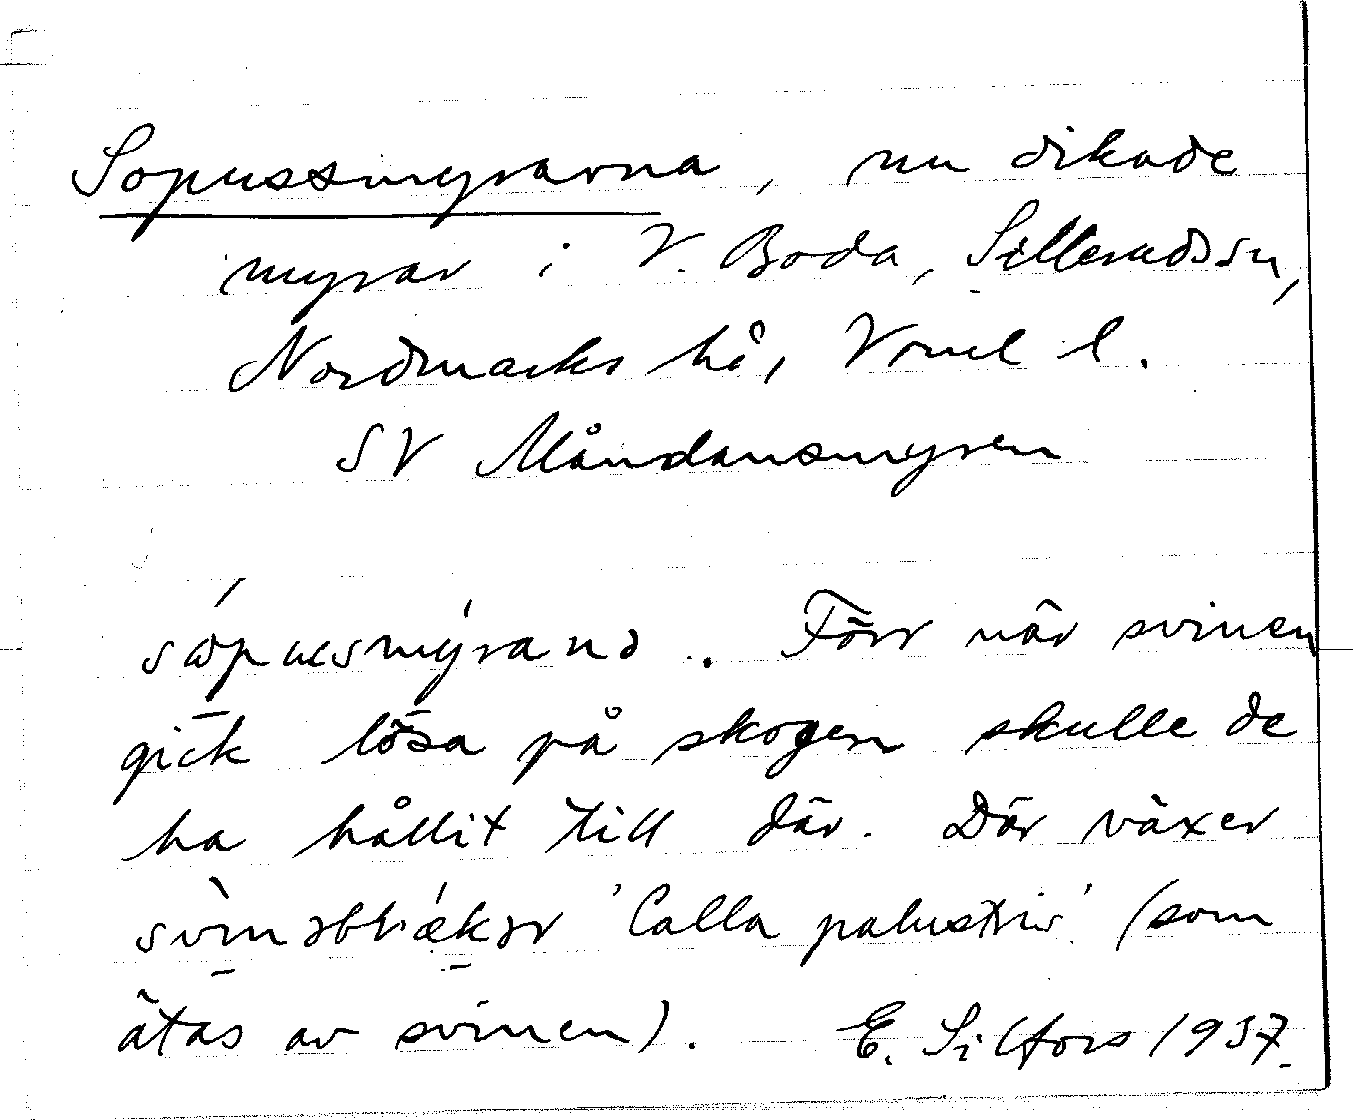 Sopussmyrarna, nu dikade
myrar i V. Boda, Sillerudssn,
Nordmarks hd, Vrml l.
SV Måndansmyren
Förr när svinen
gick lösa på skogen skulle de
ha hållit till där. Där växer
'Calla palustris' (som
ätas av svinen). E. Silfors 1937.